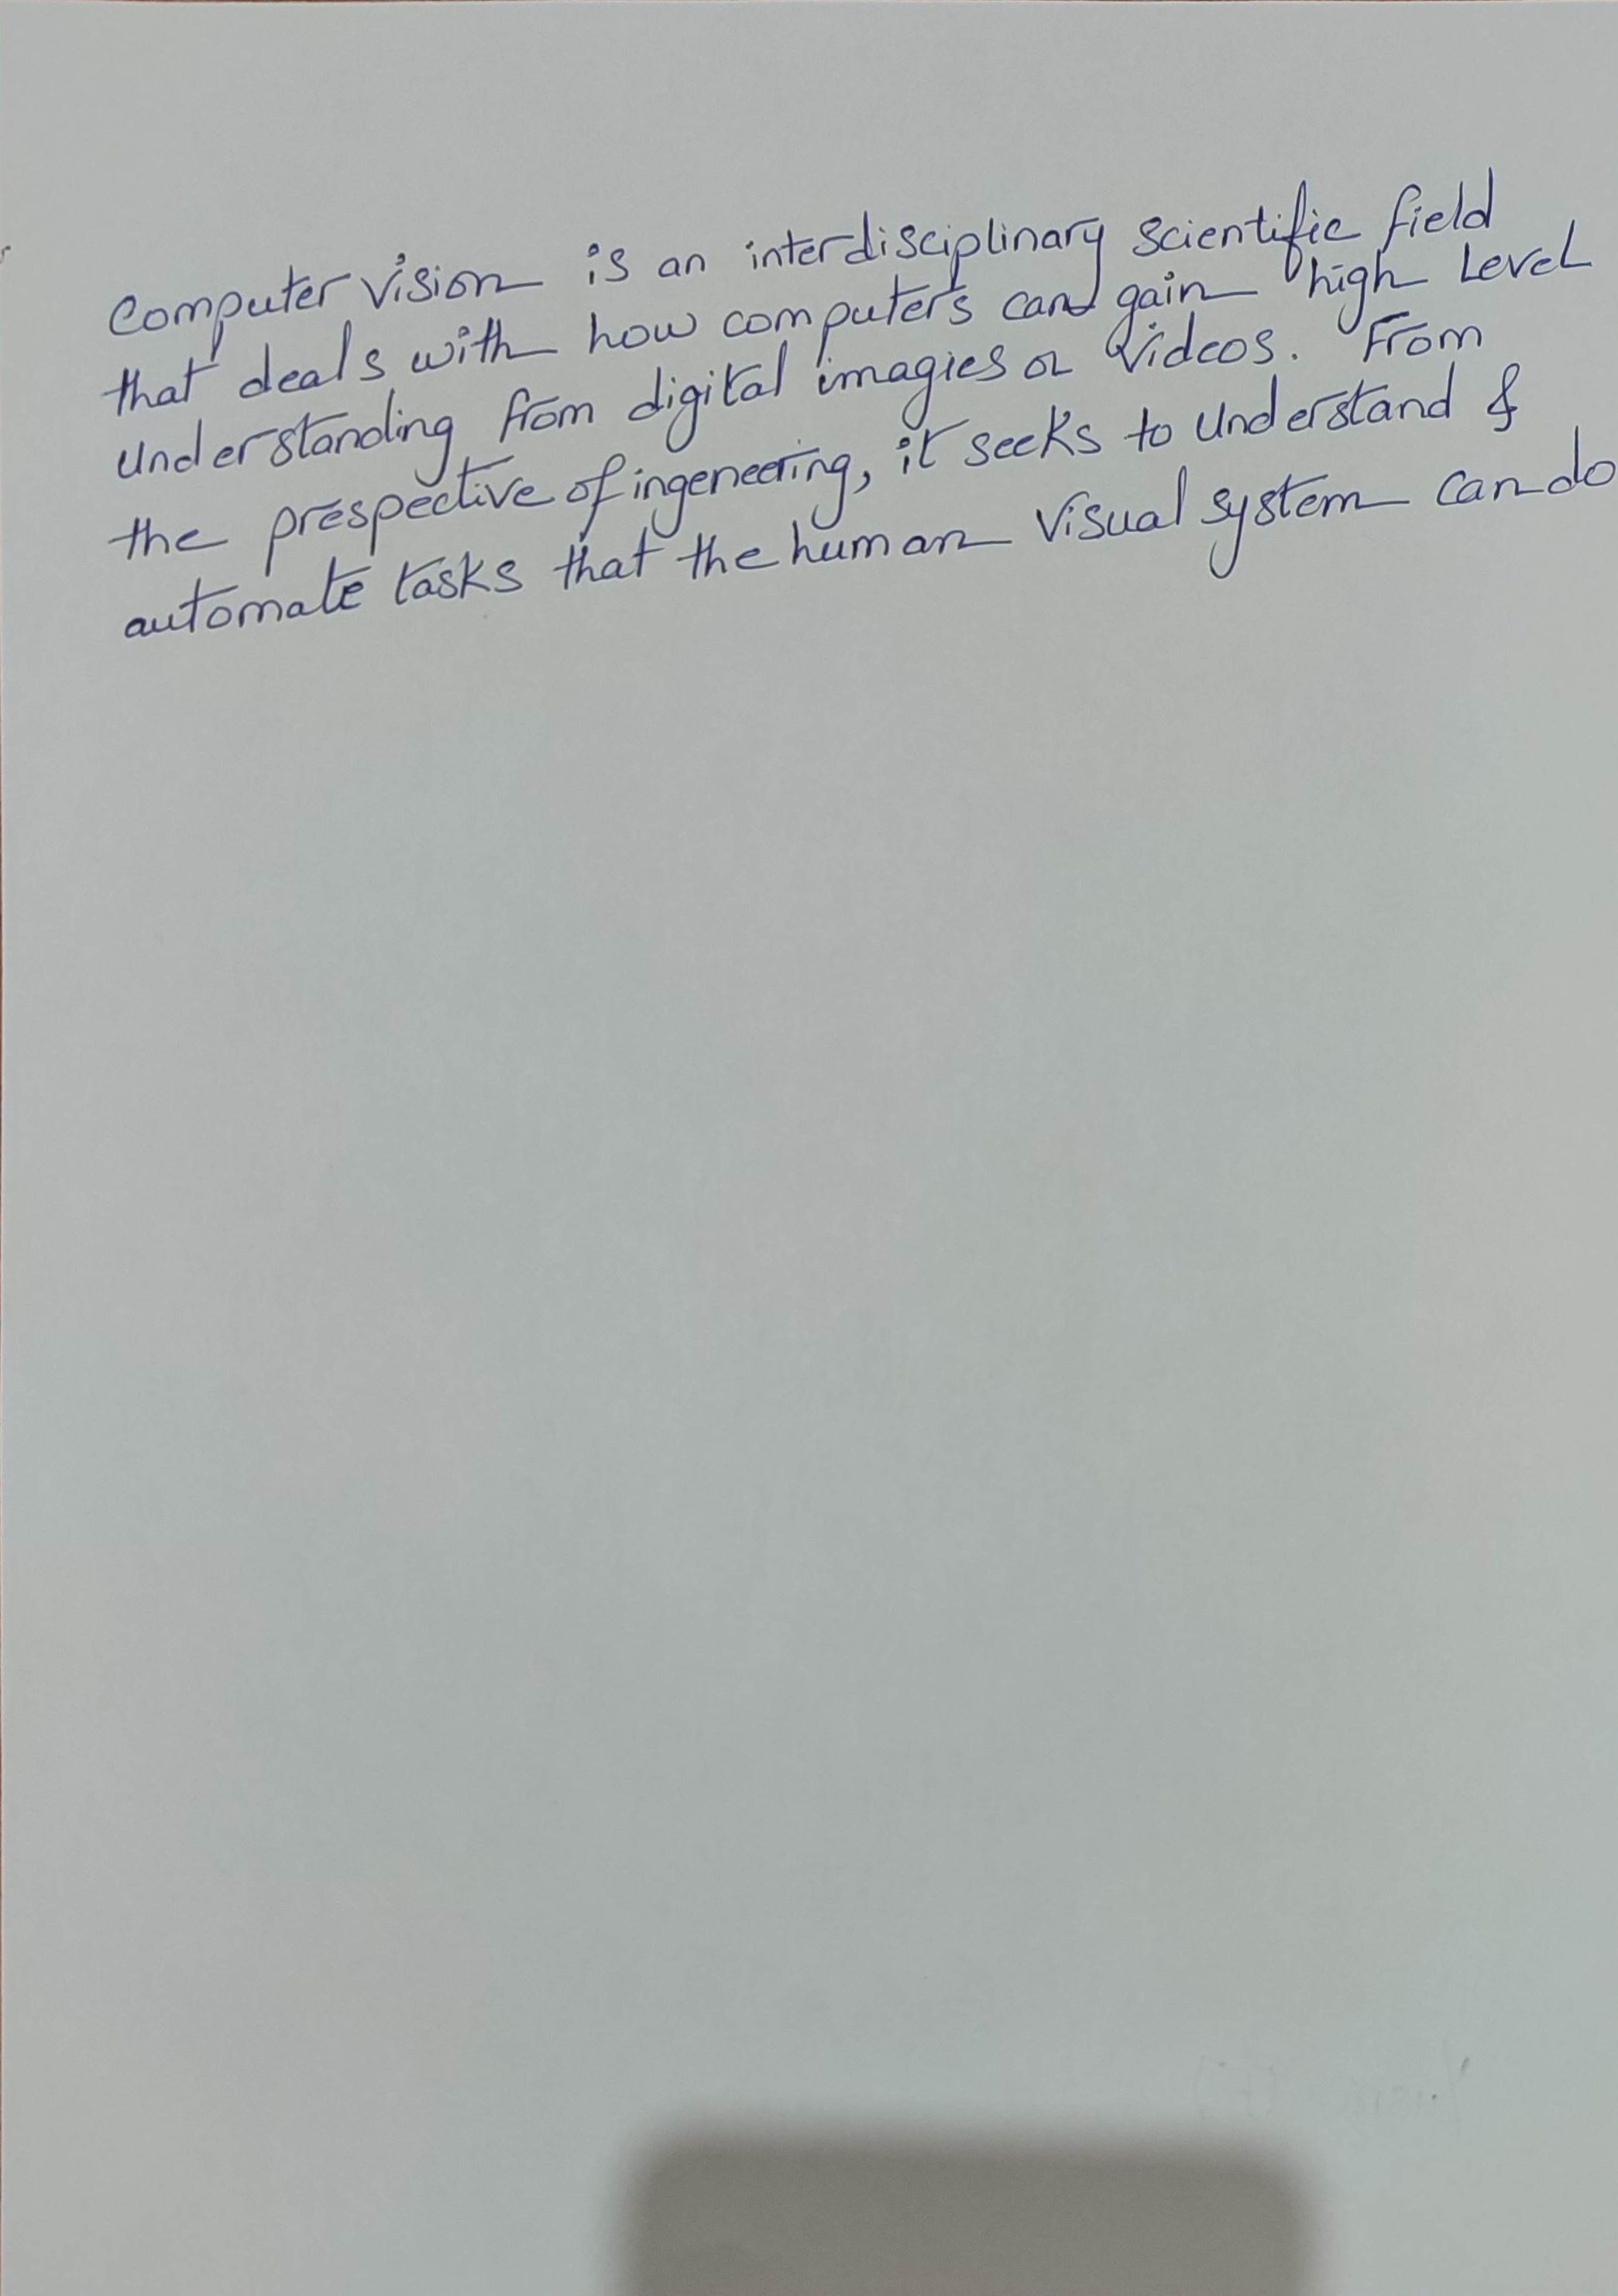 Computer vision is an interdisciplinary scientific field
that deals with how computers can gain high level
understanding from digital imagies or videos. From
the prespective of ingeneering, it seeks to understand &
automate tasks that the human visual system can do